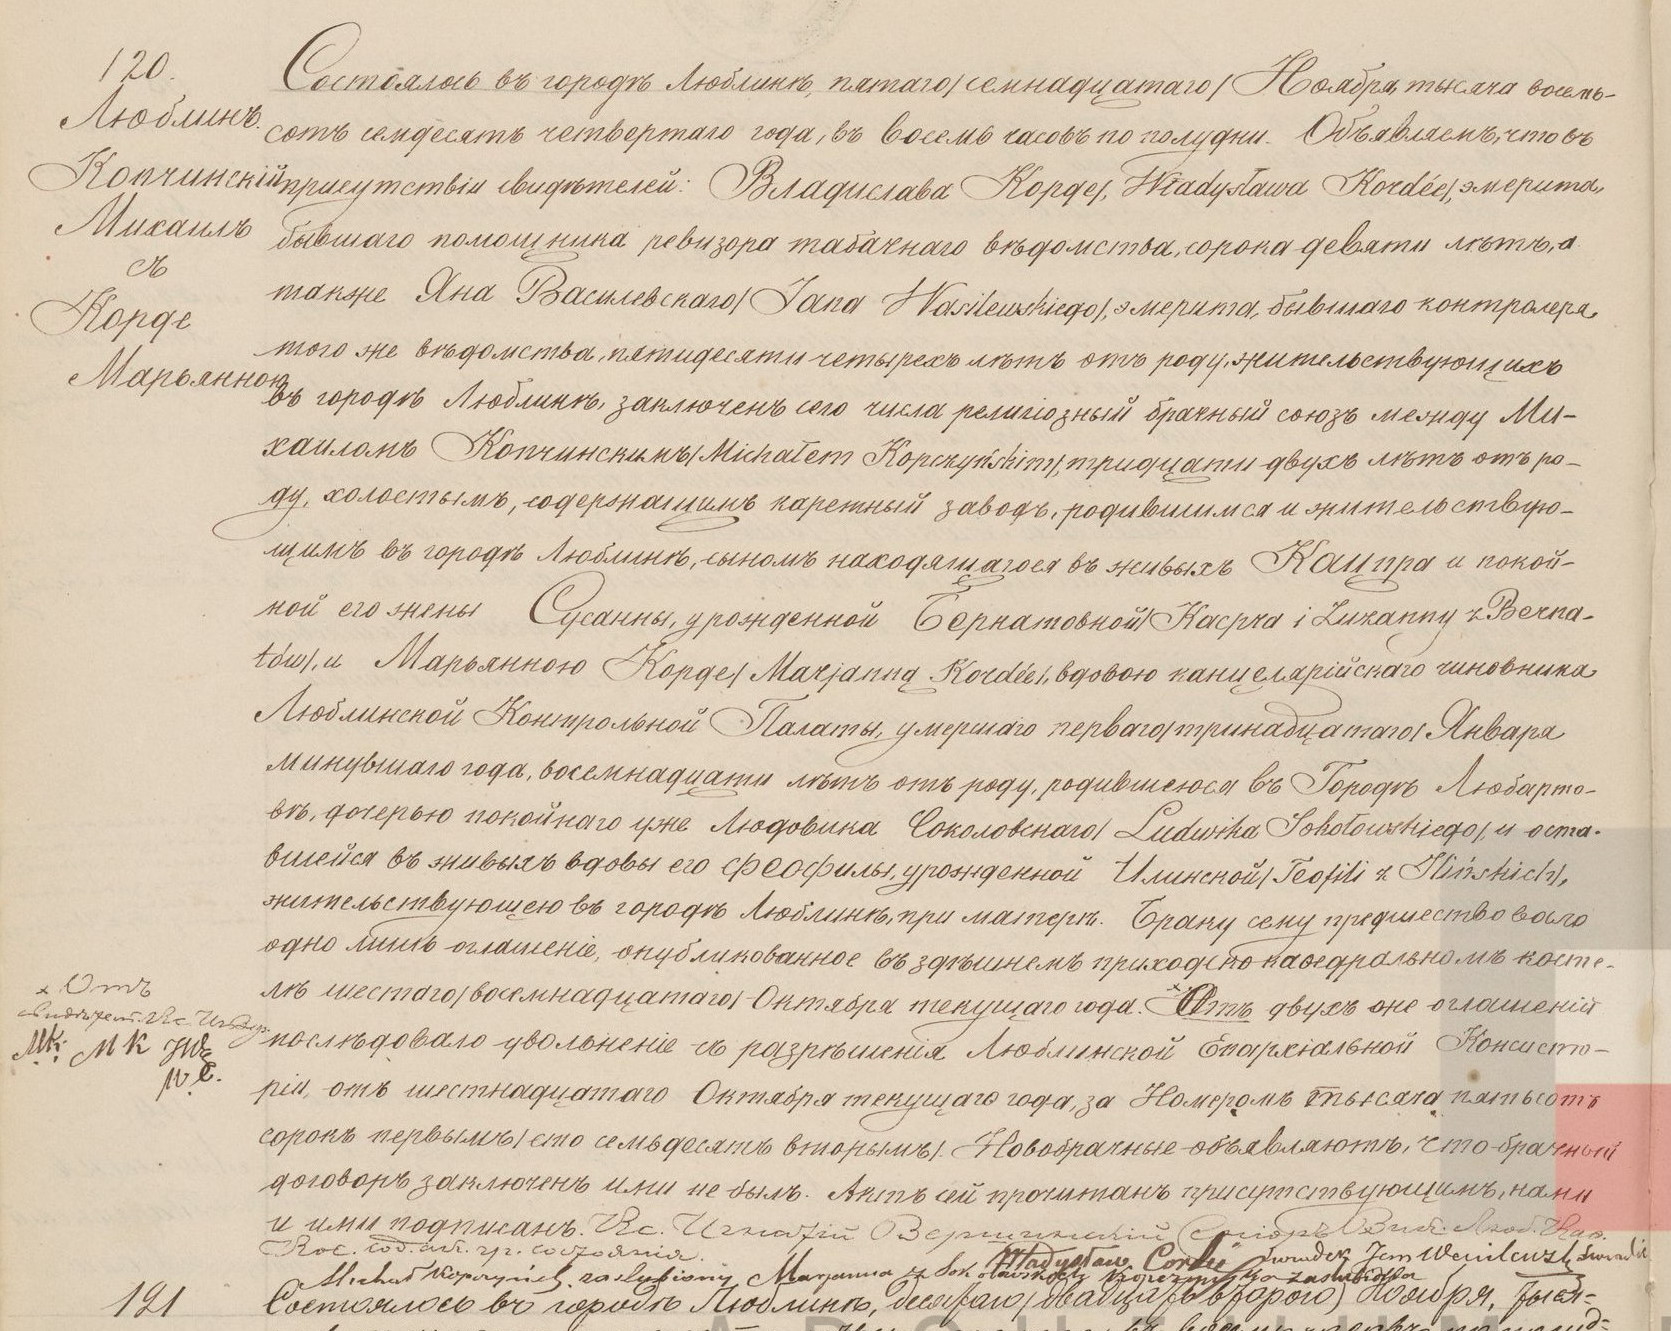 120.
Люблинъ.
Копчинскій
Михаилъ
съ
Корде
Марьянною
Состоялось въ городѣ Люблинѣ, пятаго/семнадцатаго/ Ноября тысяча восемь-
сотъ семдесятъ четвертаго года, въ восемь часовъ по полудни. Объявляемъ, что въ
присутствіи свидѣтелей: Владислава Корде/, Władysława Kordée/, эмерита,
бывшаго помощника ревизора табачнаго вѣдомства, сорока девяти лѣтъ, а
также Яна Василевскаго/ Jana Wasilewskiego/, эмерита, бывшаго контролера
того же вѣдомства, пятидесяти четырехъ лѣтъ отъ роду, жительствующихъ
въ городѣ Люблинѣ, заключенъ сего числа религіозный брачный союзъ между Ми-
хаиломъ Копчинскимъ/Michałem Kopczyńskim/, тридцати двухъ лѣтъ отъ ро-
ду, холостымъ, содержащимъ каретный заводъ, родившимся и жительствую-
щимъ въ городѣ Люблинѣ, сыномъ находящагося въ живыхъ Каспра и покой-
ной его жены Сусанны, урожденной Бернатовной/Kacpra i Zuzanny z Berna-
tów/, и Марьянною Корде/ Marjanną Kordée/, вдовою канцелярійскаго чиновника
Люблинской Контрольной Палаты, умершаго перваго/тринадцатаго/ Января
минувшаго года, восемнадцати лѣтъ отъ роду, родившеюся въ Городѣ Любарто-
вѣ, дочерью покойнаго уже Людовика Соколовскаго/ Ludwika Sokołowskiego/, и оста-
вшейся въ живыхъ вдовы его Феофилы, урожденной Илинской/Teofili z Ilińskich/,
жительствующею въ городѣ Люблинѣ, при матери. Браку сему предшествовало
одно лишь оглашеніе, опубликованное въ здѣшнемъ приходско-кафедральномъ косте-
лѣ шестаго/восемнадцатаго/ Октября текущаго года. ˣОтъ двухъ же оглашеній
x Отъ
MK. MK
послѣдовало увольненіе съ разрѣшенія Люблинской Епархіальной Консисто-
ріи, отъ шестнадцатаго Октября текущаго года, за Номеромъ тысяча пятьсотъ
сорокъ первымъ/сто семьдесятъ вторымъ/. Новобрачные объявляютъ, что брачный
договоръ заключенъ ими не былъ. Актъ сей прочитанъ присутствующимъ, нами
и ими подписанъ. Кс. Игнатій
сод. акт. гр. состоянія.
Władysław Cordée świadek Jan Wasilewski świadek
Michał Kopczyński zaslubiony Marjanna z Sokołowskich Kopczyńska zaślubiona
121 Состоялось въ городѣ Люблинѣ, десятаго/двадцать втораго/ Ноября, тыся-